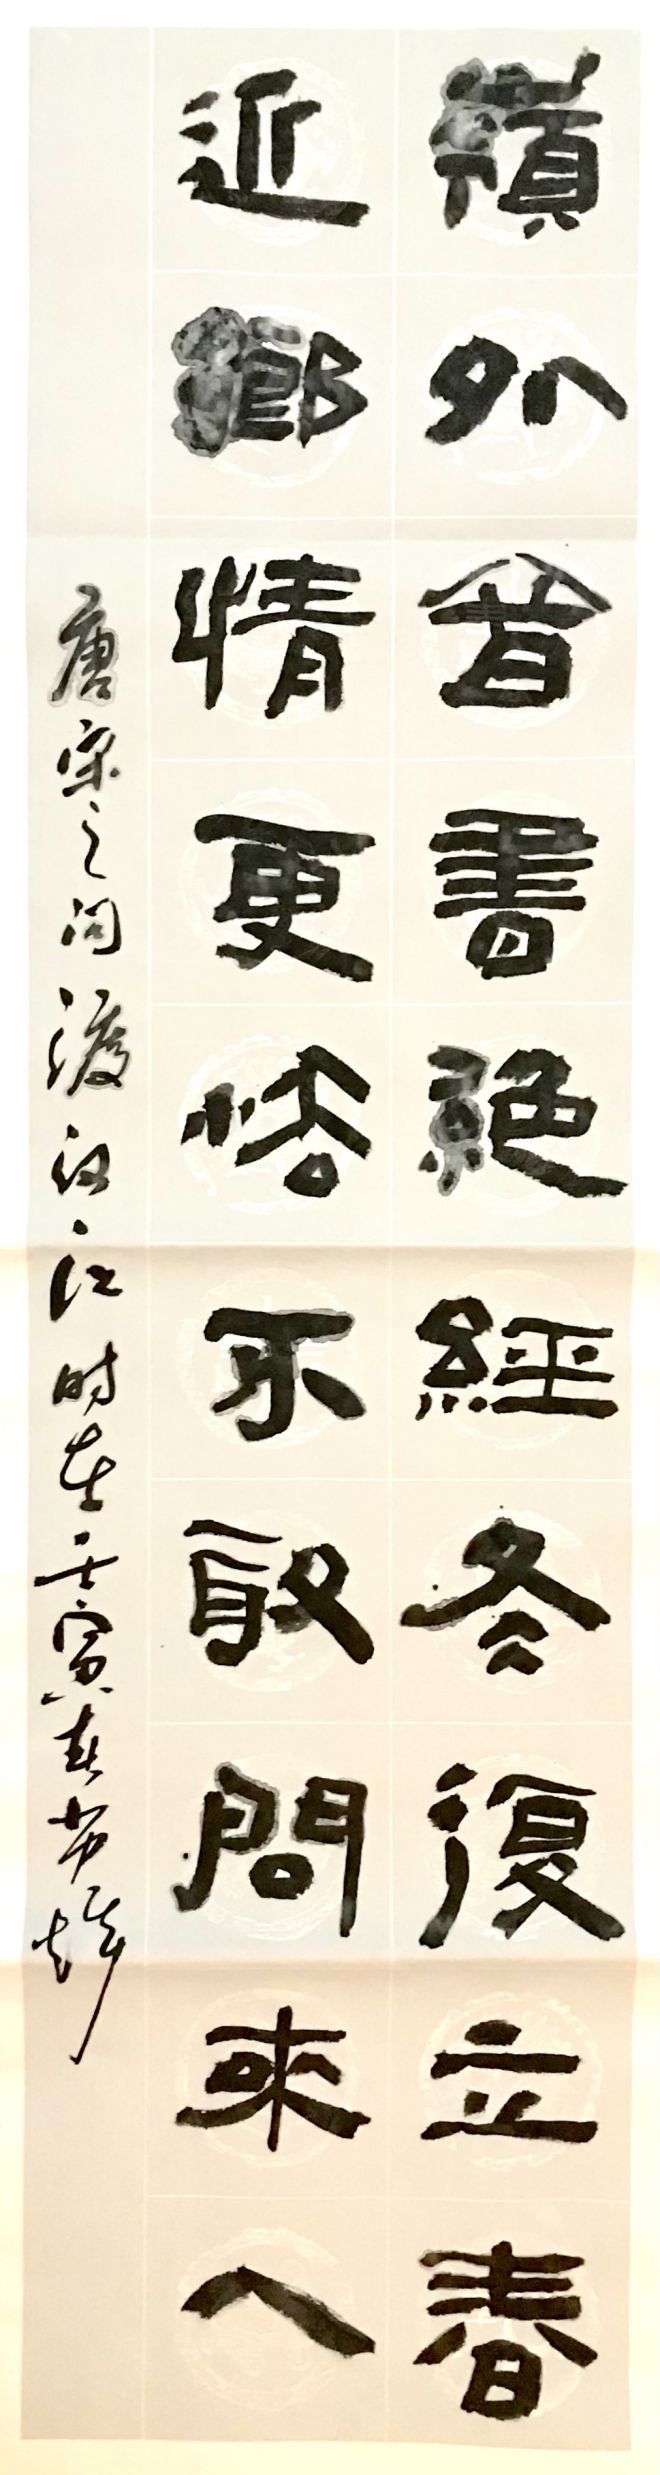 嶺外音書絕經冬復立春
近鄉情更怯不敢問來人
唐宋之问渡汉江时在壬寅春